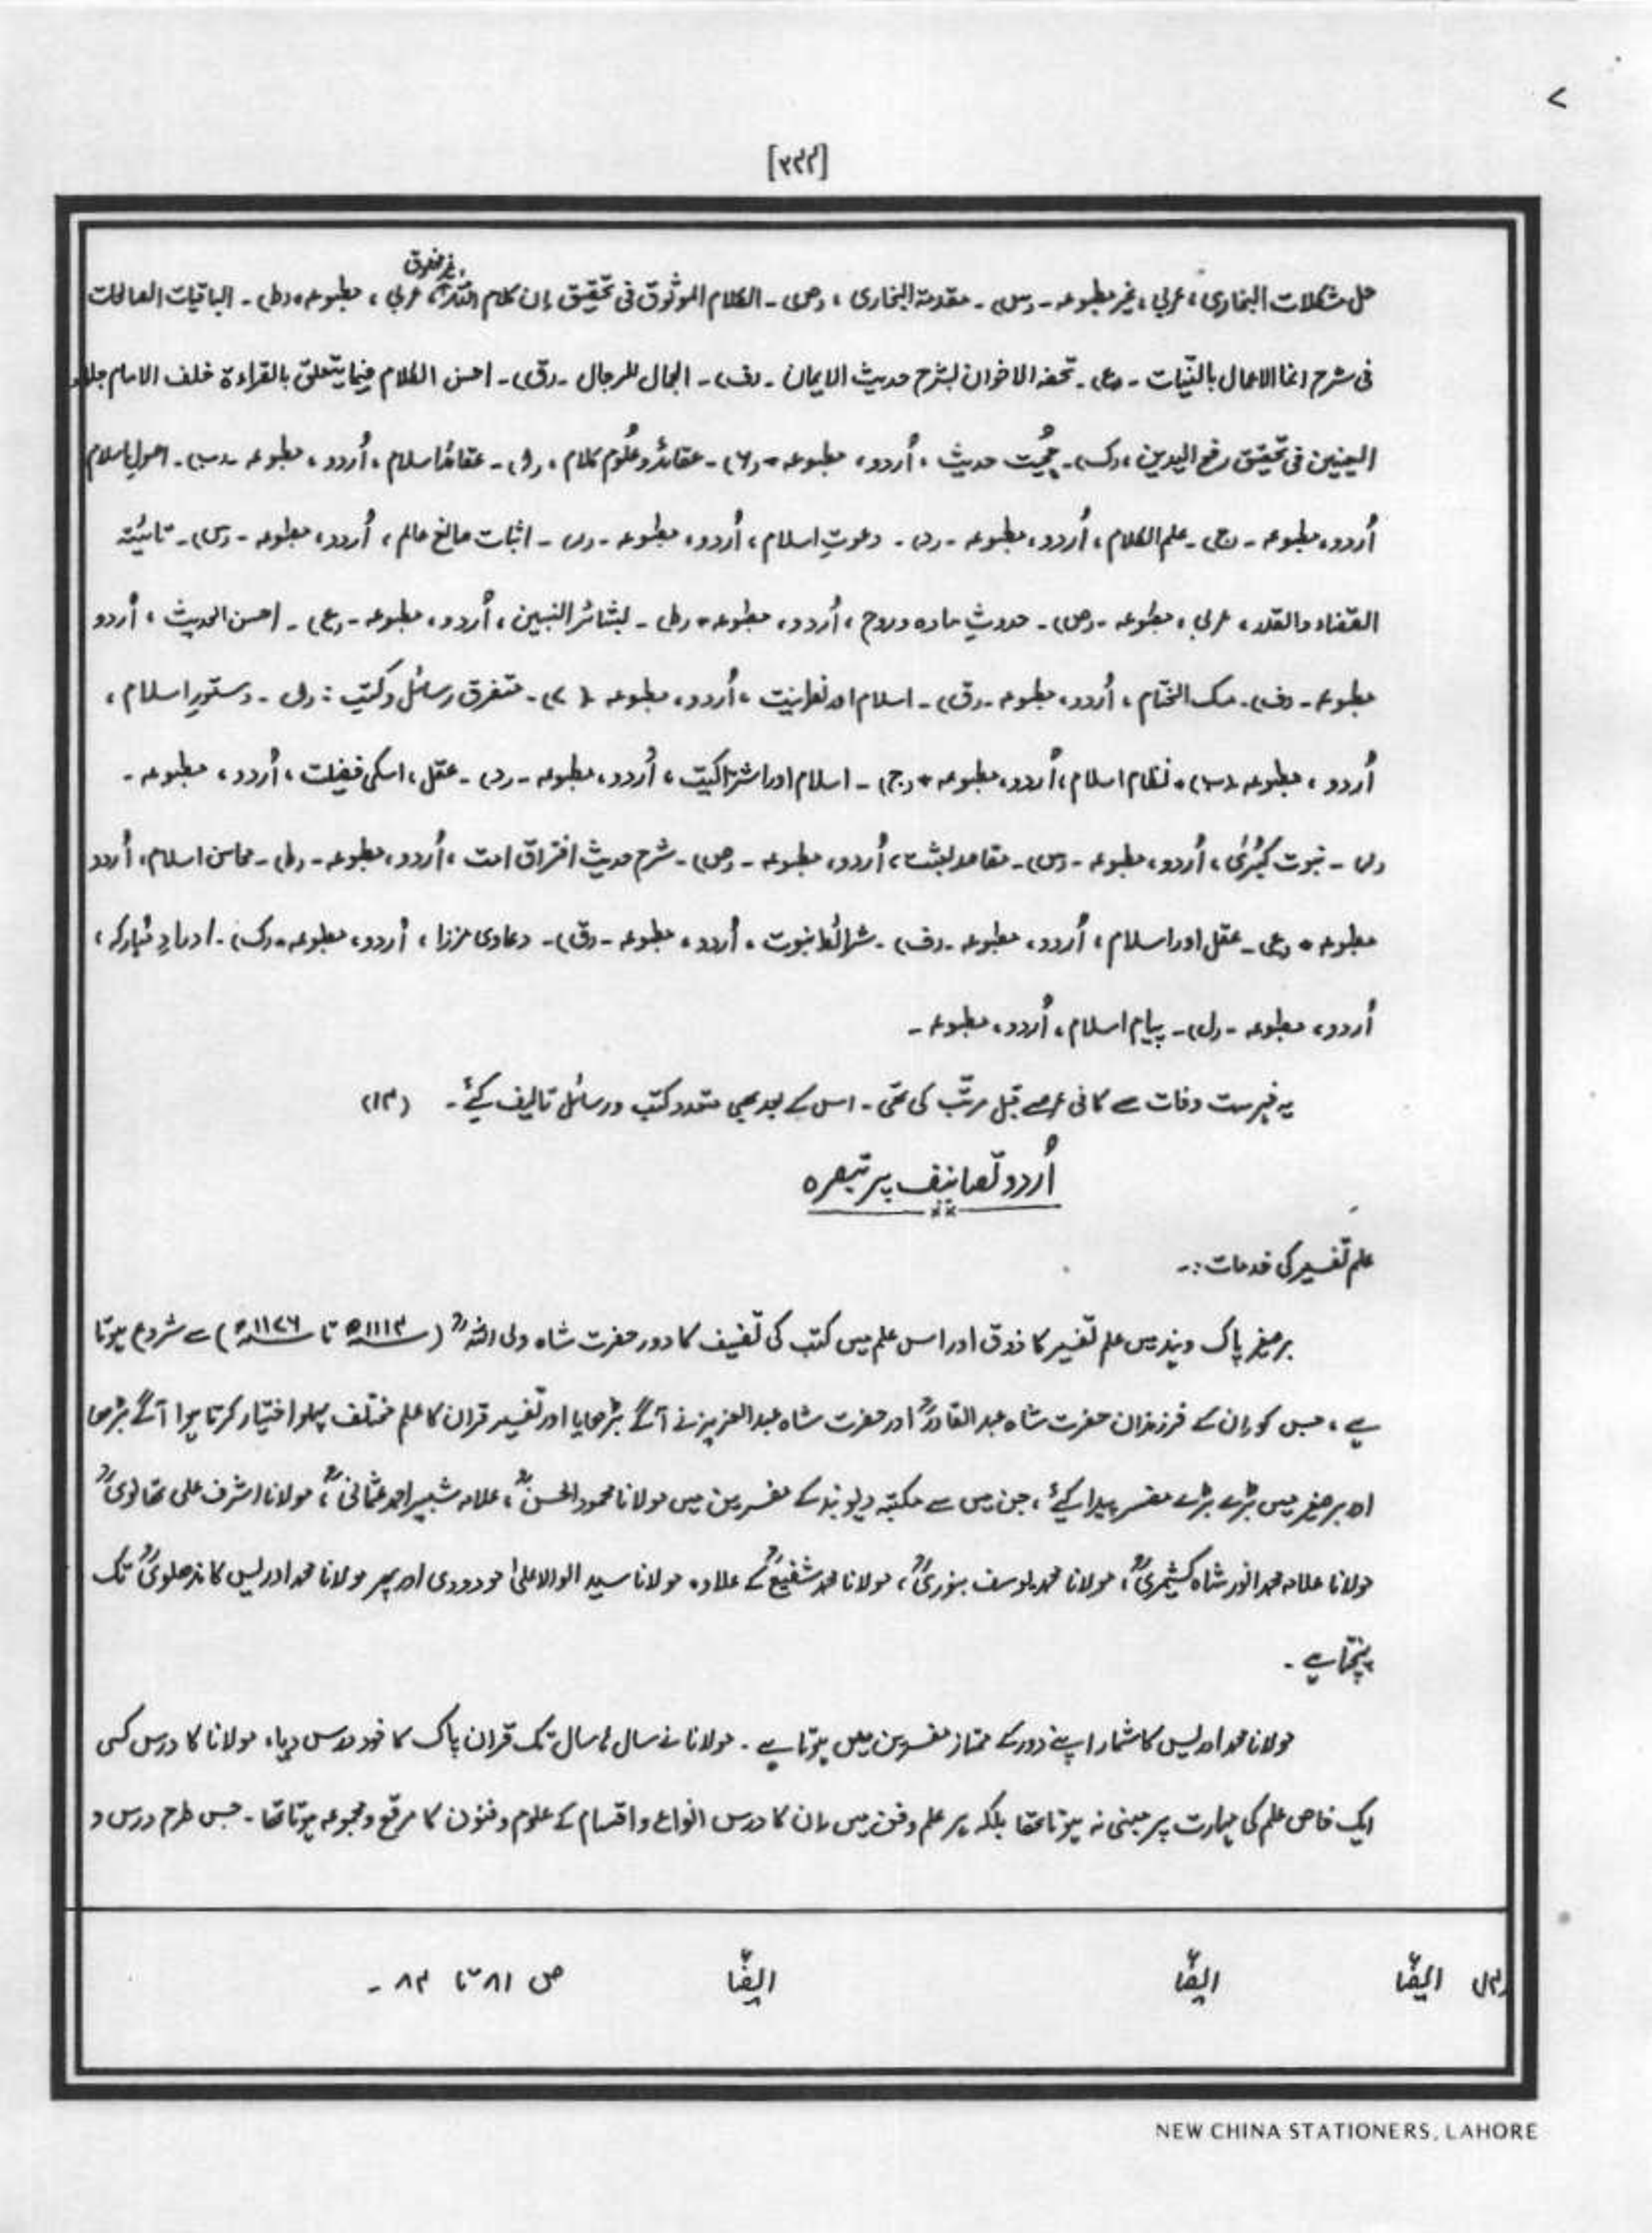 >
[۳۲۲]
حل مشکلات البخاری، عربی، غیر مطبوعہ ۔ (س) ۔ مقدمۃ البخاری، (ص) ۔ الکلام الموثوق فی تحقیق ان کلام اللہ غیر مخلوق، عربی، مطبوعہ ۔ (ط) ۔ الباقیات الصالحات
فی شرح انما الاعمال بالنیّات ۔ (ع) ۔ تحفہ الاخوان لبشرح حدیث الایمان ۔ (ف) ۔ الجمال للرجال ۔ (ق) ۔ احسن الکلام فیما یتعلق بالقراءۃ خلف الامام جلاء
العینین فی تحقیق رفع الیدین، (ک) ۔ حُجیّت حدیث، اُردو، مطبوعہ ۔ (۶) ۔ عقائد و عُلوم کلام، (ا) ۔ عقائد اسلام، اُردو، مطبوعہ ۔ (ب) ۔ اصولِ اسلام
اُردو، مطبوعہ ۔ (ج) ۔ علم الکلام، اُردو، مطبوعہ ۔ (د) ۔ دعوتِ اسلام، اُردو، مطبوعہ ۔ (ر) ۔ اثبات صانع عالم، اُردو، مطبوعہ ۔ (س) ۔ تائیّہ
القضاء والقدر، عربی، مطبوعہ ۔ (ص) ۔ حدوثِ مادہ و روح، اُردو، مطبوعہ ۔ (ط) ۔ بشائر النبیین، اُردو، مطبوعہ ۔ (ع) ۔ احسن الحدیث، اُردو
مطبوعہ ۔ (ف) ۔ مسک الختام، اُردو، مطبوعہ ۔ (ق) ۔ اسلام اور نصرانیت، اُردو، مطبوعہ (۷) ۔ متفرق رسائل و کتب : (ا) ۔ دستورِ اسلام،
اُردو، مطبوعہ (ب) ۔ نظام اسلام، اُردو، مطبوعہ ۔ (ج) ۔ اسلام اور اشتراکیت، اُردو، مطبوعہ ۔ (د) ۔ عقل، اسکی فضیلت، اُردو، مطبوعہ ۔
(ر) ۔ نبوت کُبریٰ، اُردو، مطبوعہ ۔ (س) ۔ مقاصد بعثت، اُردو، مطبوعہ ۔ (ص) ۔ شرح حدیث افتراق امت، اُردو، مطبوعہ ۔ (ط) ۔ محاسن اسلام، اُردو
مطبوعہ ۔ (ع) ۔ عقل اور اسلام، اُردو، مطبوعہ ۔ (ف) ۔ شرائط نبوت، اُردو، مطبوعہ ۔ (ق) ۔ دعاوی مرزا، اُردو، مطبوعہ ۔ (ک) ۔ اورادِ مُبارکہ،
اُردو، مطبوعہ ۔ (ل) ۔ پیام اسلام، اُردو، مطبوعہ ۔
یہ فہرست وفات سے کافی عرصے قبل مرتّب کی تھی ۔ اس کے بعد بھی متعدد کتب و رسائل تالیف کیئے ۔ (۱۳)
اُردو تصانیف پر تبصرہ
علم تفسیر کی خدمات :۔
برصغیر پاک و ہند میں علم تفسیر کا ذوق اور اس علم میں کتب کی تصنیف کا دور حضرت شاہ ولی اللہؒ (۱۱۱۴ھ تا ۱۱۷۶ھ) سے شروع ہوتا
ہے، جس کو ان کے فرزندان حضرت شاہ عبدالقادرؒ اور حضرت شاہ عبدالعزیز نے آگے بڑھایا اور تفسیر قران کا علم مختلف پہلو اختیار کرتا ہوا آگے بڑھا
اور برصغیر میں بڑے بڑے مفسر پیدا کیئے، جن میں سے مکتبہ دیوبند کے مفسرین میں مولانا محمود الحسنؒ، علامہ شبیر احمد عثمانیؒ، مولانا اشرف علی تھانویؒ
مولانا علامہ محمد انور شاہ کشیمریؒ، مولانا محمد یوسف بنوریؒ، مولانا محمد شفیعؒ کے علاوہ مولانا سید ابوالاعلیٰ مودودی اور پھر مولانا محمد ادریس کاندھلویؒ تک
پہنچتا ہے ۔
مولانا محمد ادریس کا شمار اپنے دور کے ممتاز مفسرین میں ہوتا ہے ۔ مولانا نے سال ہا سال تک قران پاک کا خود درس دیا، مولانا کا درس کسی
ایک خاص علم کی مہارت پر مبنی نہ ہوتا تھا بلکہ ہر علم و فن میں ان کا درس انواع و اقسام کے علوم و فنون کا مرقع و مجموعہ ہوتا تھا ۔ جس طرح درس و
ایضًا ایضًا ایضًا ص ۸۱ تا ۸۳ ۔
NEW CHINA STATIONERS, LAHORE